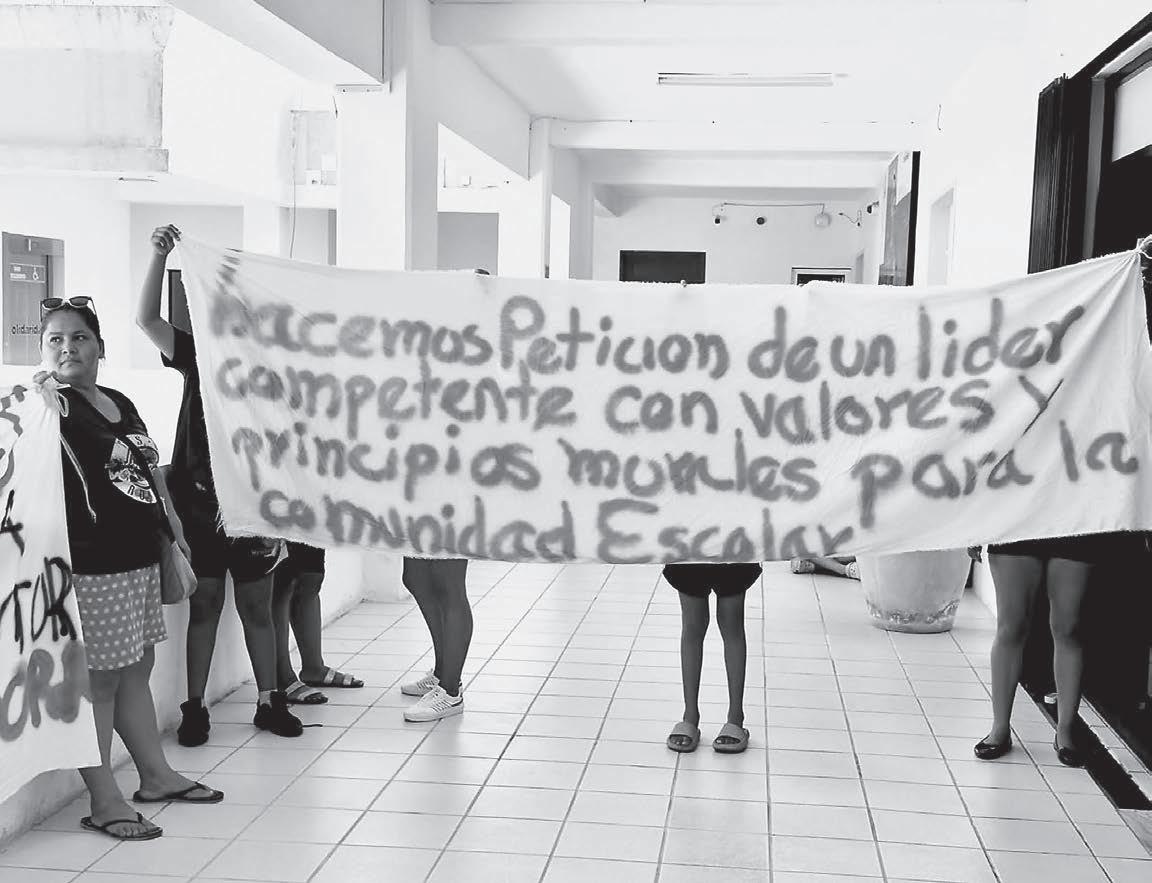 hacemos Peticion de un lider
competente con valores y
principios morales para la
comunidad Escolar
olidarida
TOR
ORA